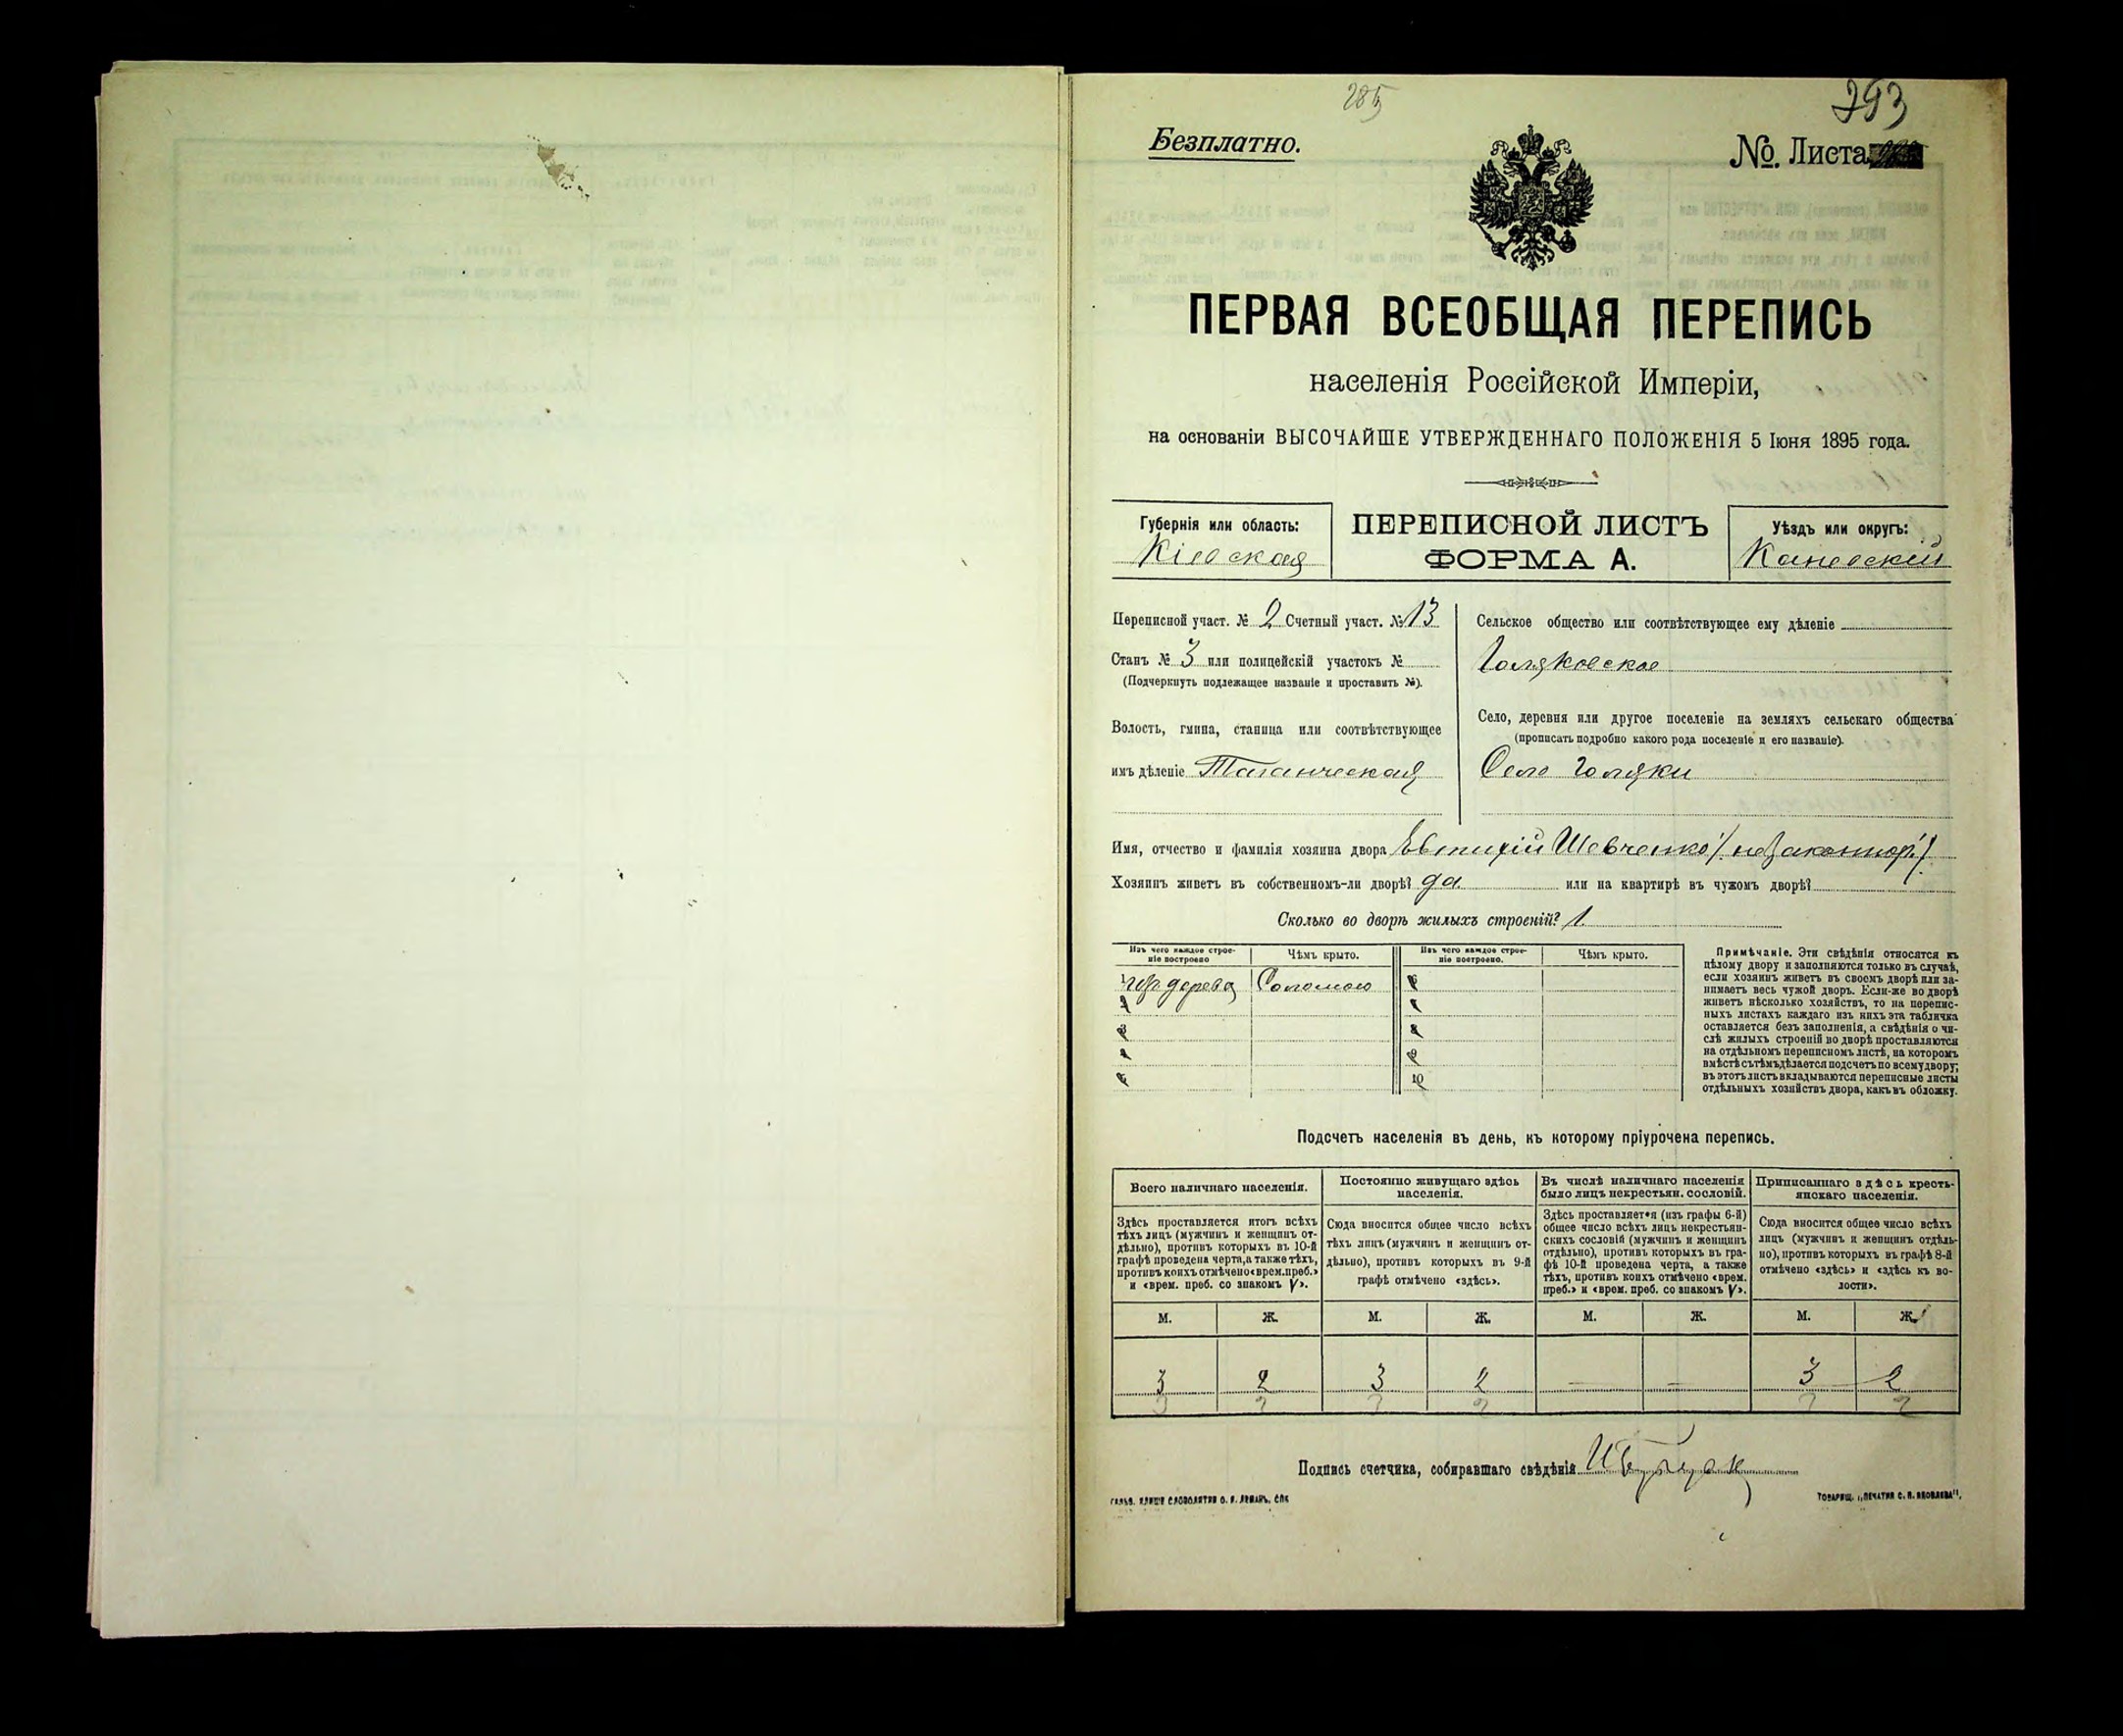 285
293
Безплатно.
№. Листа
ПЕРВАЯ ВСЕОБЩАЯ ПЕРЕПИСЬ
населенія Россійской Имперіи,
на основаніи ВЫСОЧАЙШЕ УТВЕРЖДЕННАГО ПОЛОЖЕНІЯ 5 Іюня 1895 года.
Губернія или область:
Кіевская
ПЕРЕПИСНОЙ ЛИСТЪ
ФОРМА А.
Уѣздъ или округъ:
Каневскій
Переписной участ. № 2 Счетный участ. № 13
Станъ № 3 или полицейскій участокъ №
(Подчеркнуть подлежащее названіе и проставить №).
Волость, гмина, станица или соотвѣтствующее
имъ дѣленіе Таганческая
Сельское общество или соотвѣтствующее ему дѣленіе
Голяковское
Село, деревня или другое поселеніе на земляхъ сельскаго общества
(прописать подробно какого рода поселеніе и его названіе).
Село Голяки
Имя, отчество и фамилія хозяина двора Евтихій Шевченко /незаконнор./
Хозяинъ живетъ въ собственномъ-ли дворѣ? да или на квартирѣ въ чужомъ дворѣ?
Сколько во дворѣ жилыхъ строеній? 1.
Изъ чего каждое строе-
ніе построено
Чѣмъ крыто.
Изъ чего каждое строе-
ніе построено.
Чѣмъ крыто.
1 изъ дерева
Соломою
2
3
4
5
6
7
8
9
10
Примѣчаніе. Эти свѣдѣнія относятся къ
цѣлому двору и заполняются только въ случаѣ,
если хозяинъ живетъ въ своемъ дворѣ или за-
нимаетъ весь чужой дворъ. Если-же во дворѣ
живетъ нѣсколько хозяйствъ, то на перепис-
ныхъ листахъ каждаго изъ нихъ эта табличка
оставляется безъ заполненія, а свѣдѣнія о чи-
слѣ жилыхъ строеній во дворѣ проставляются
на отдѣльномъ переписномъ листѣ, на которомъ
вмѣстѣ съ тѣмъ дѣлается подсчетъ по всему двору;
въ этотъ листъ вкладываются переписные листы
отдѣльныхъ хозяйствъ двора, какъ въ обложку.
Подсчетъ населенія въ день, къ которому пріурочена перепись.
Всего наличнаго населенія.
Постоянно живущаго здѣсь
населенія.
Въ числѣ наличнаго населенія
было лицъ некрестьян. сословій.
Приписаннаго здѣсь кресть-
янскаго населенія.
Здѣсь проставляется итогъ всѣхъ
тѣхъ лицъ (мужчинъ и женщинъ от-
дѣльно), противъ которыхъ въ 10-й
графѣ проведена черта, а также тѣхъ,
противъ коихъ отмѣчено «врем. преб.»
и «врем. преб. со знакомъ V».
Сюда вносится общее число всѣхъ
тѣхъ лицъ (мужчинъ и женщинъ от-
дѣльно), противъ которыхъ въ 9-й
графѣ отмѣчено «здѣсь».
Здѣсь проставляется (изъ графы 6-й)
общее число всѣхъ лицъ некрестьян-
скихъ сословій (мужчинъ и женщинъ
отдѣльно), противъ которыхъ въ гра-
фѣ 10-й проведена черта, а также
тѣхъ, противъ коихъ отмѣчено «врем.
преб.» и «врем. преб. со знакомъ V».
Сюда вносится общее число всѣхъ
лицъ (мужчинъ и женщинъ отдѣль-
но), противъ которыхъ въ графѣ 8-й
отмѣчено «здѣсь» и «здѣсь къ во-
лости».
М. Ж. М. Ж. М. Ж. М. Ж.
3 2 3 2 — — 3 2
3 2 3 2 3 2
Подпись счетчика, собиравшаго свѣдѣнія
ГАЛЬВ. КЛИШЕ СЛОВОЛИТНИ О. И. ЛЕМАНЪ, СПБ
ТОВАРИЩ. „ПЕЧАТНЯ С. П. ЯКОВЛЕВА".